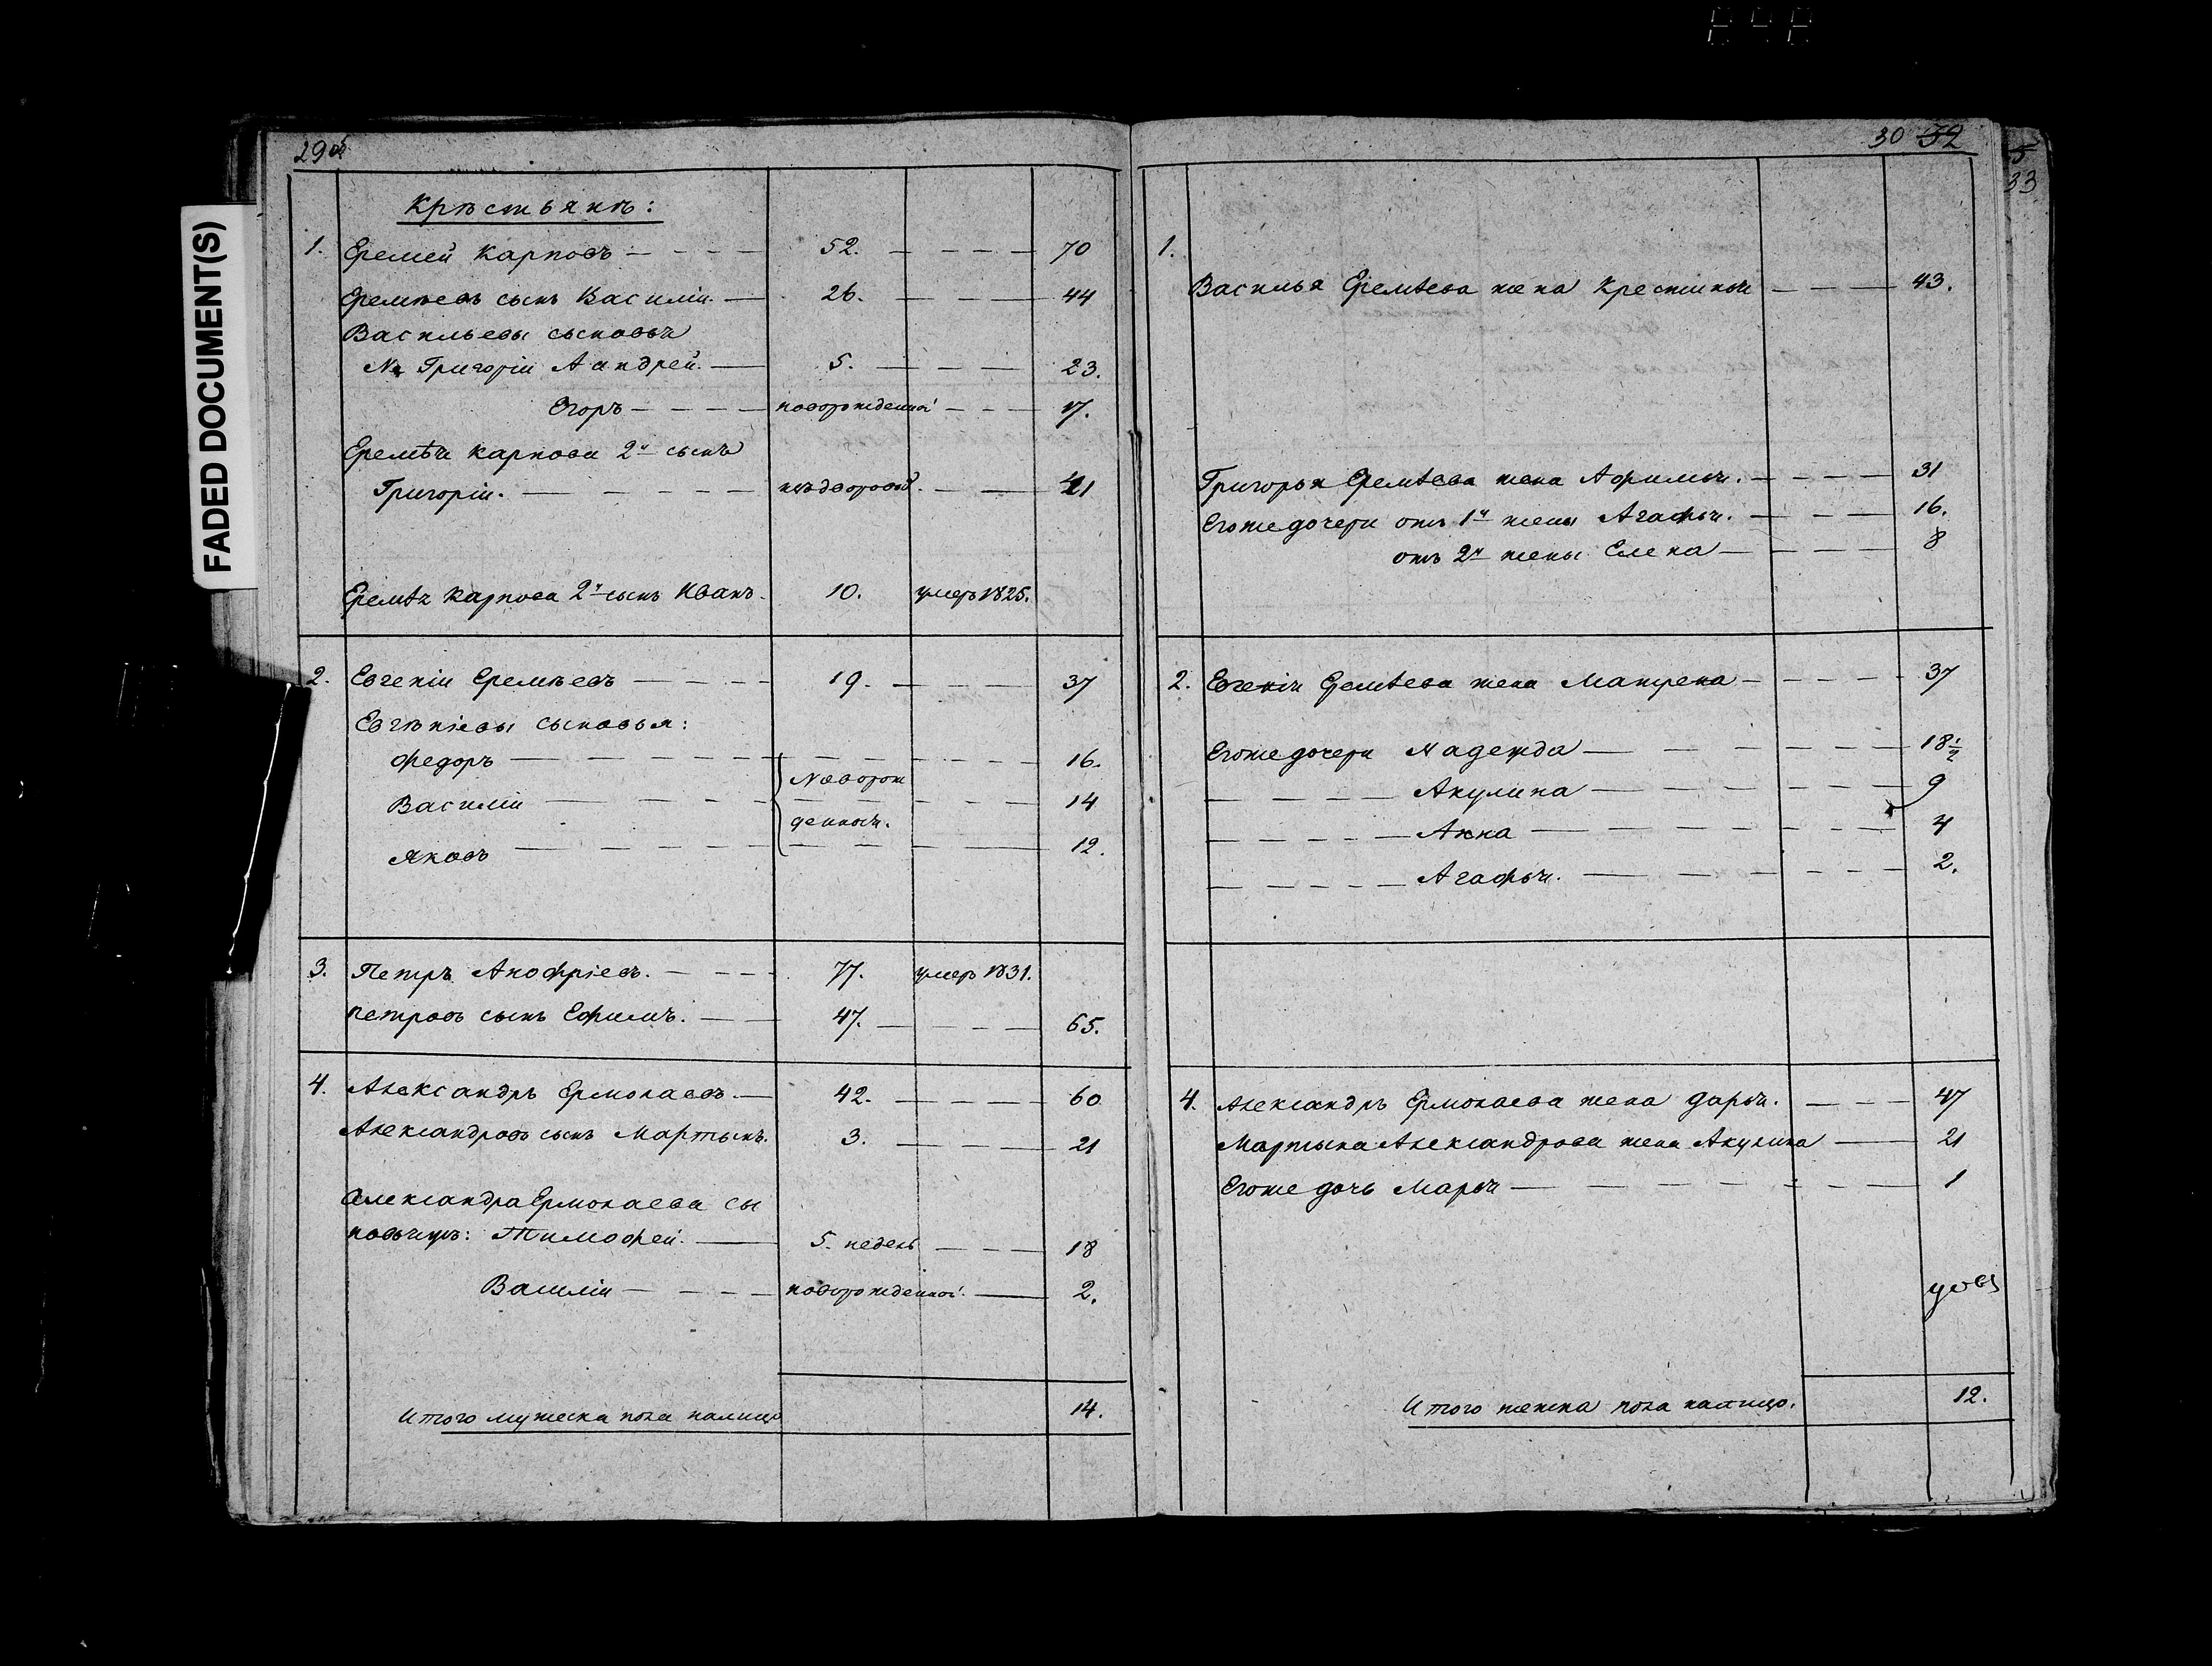 29об
Крѣстьянъ:
1. Еремей Карповъ 52. 70
Еремѣевъ сынъ Василiи. 26. 44
Васильевы сыновья
Григорiи Андрей. 5. 23.
Егоръ новорожденной 17.
Еремѣя Карпова 2й сынъ
Григорiи. 41
Еремѣя Карпова 2й сынъ Иванъ. 10. умеръ 1825.
2. Евгенiи Еремѣевъ 19. 37
Евгѣнiевы сыновья:
Федоръ 16.
Новорож
Василiи 14
денныя.
Яковъ 12.
3. Петръ Анофрiевъ. 77. умеръ 1831.
Петровъ сынъ Ефимъ. 47. 65.
4. Александръ Ермолаевъ. 42. 60
Александровъ сынъ Мартынъ. 3. 21
Александра Ермолаева сы
новья: Тимофеи. 5. недель 18
Василiи новорожденной. 2.
Итого мужеска пола налицо 14.
30 32
1.
Василья Еремѣева жена Крестинья 43.
Григорья Еремѣева жена Афимья. 31
Егоже дочери отъ 1й жены Агафья. 16.
отъ 2й жены Елена 8
2. Евгенiя Еремѣева жена Матрена 37
Егоже дочери Надежда 18½
Акулина 9
Анна 4
Агафья. 2.
4. Александръ Ермолаева жена Дарья. 47
Мартына Александрова жена Акулина 21
Егоже дочь Марья 1
Итого женска пола налицо. 12.
5
33
FADED DOCUMENT(S)